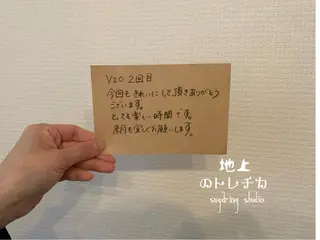 VIO 2回目
今回もきれいにして頂きありがとう
ございます。
とても楽しい時間です。
来月も宜しくお願いします。
地上
のトレチカ
sugaring studio